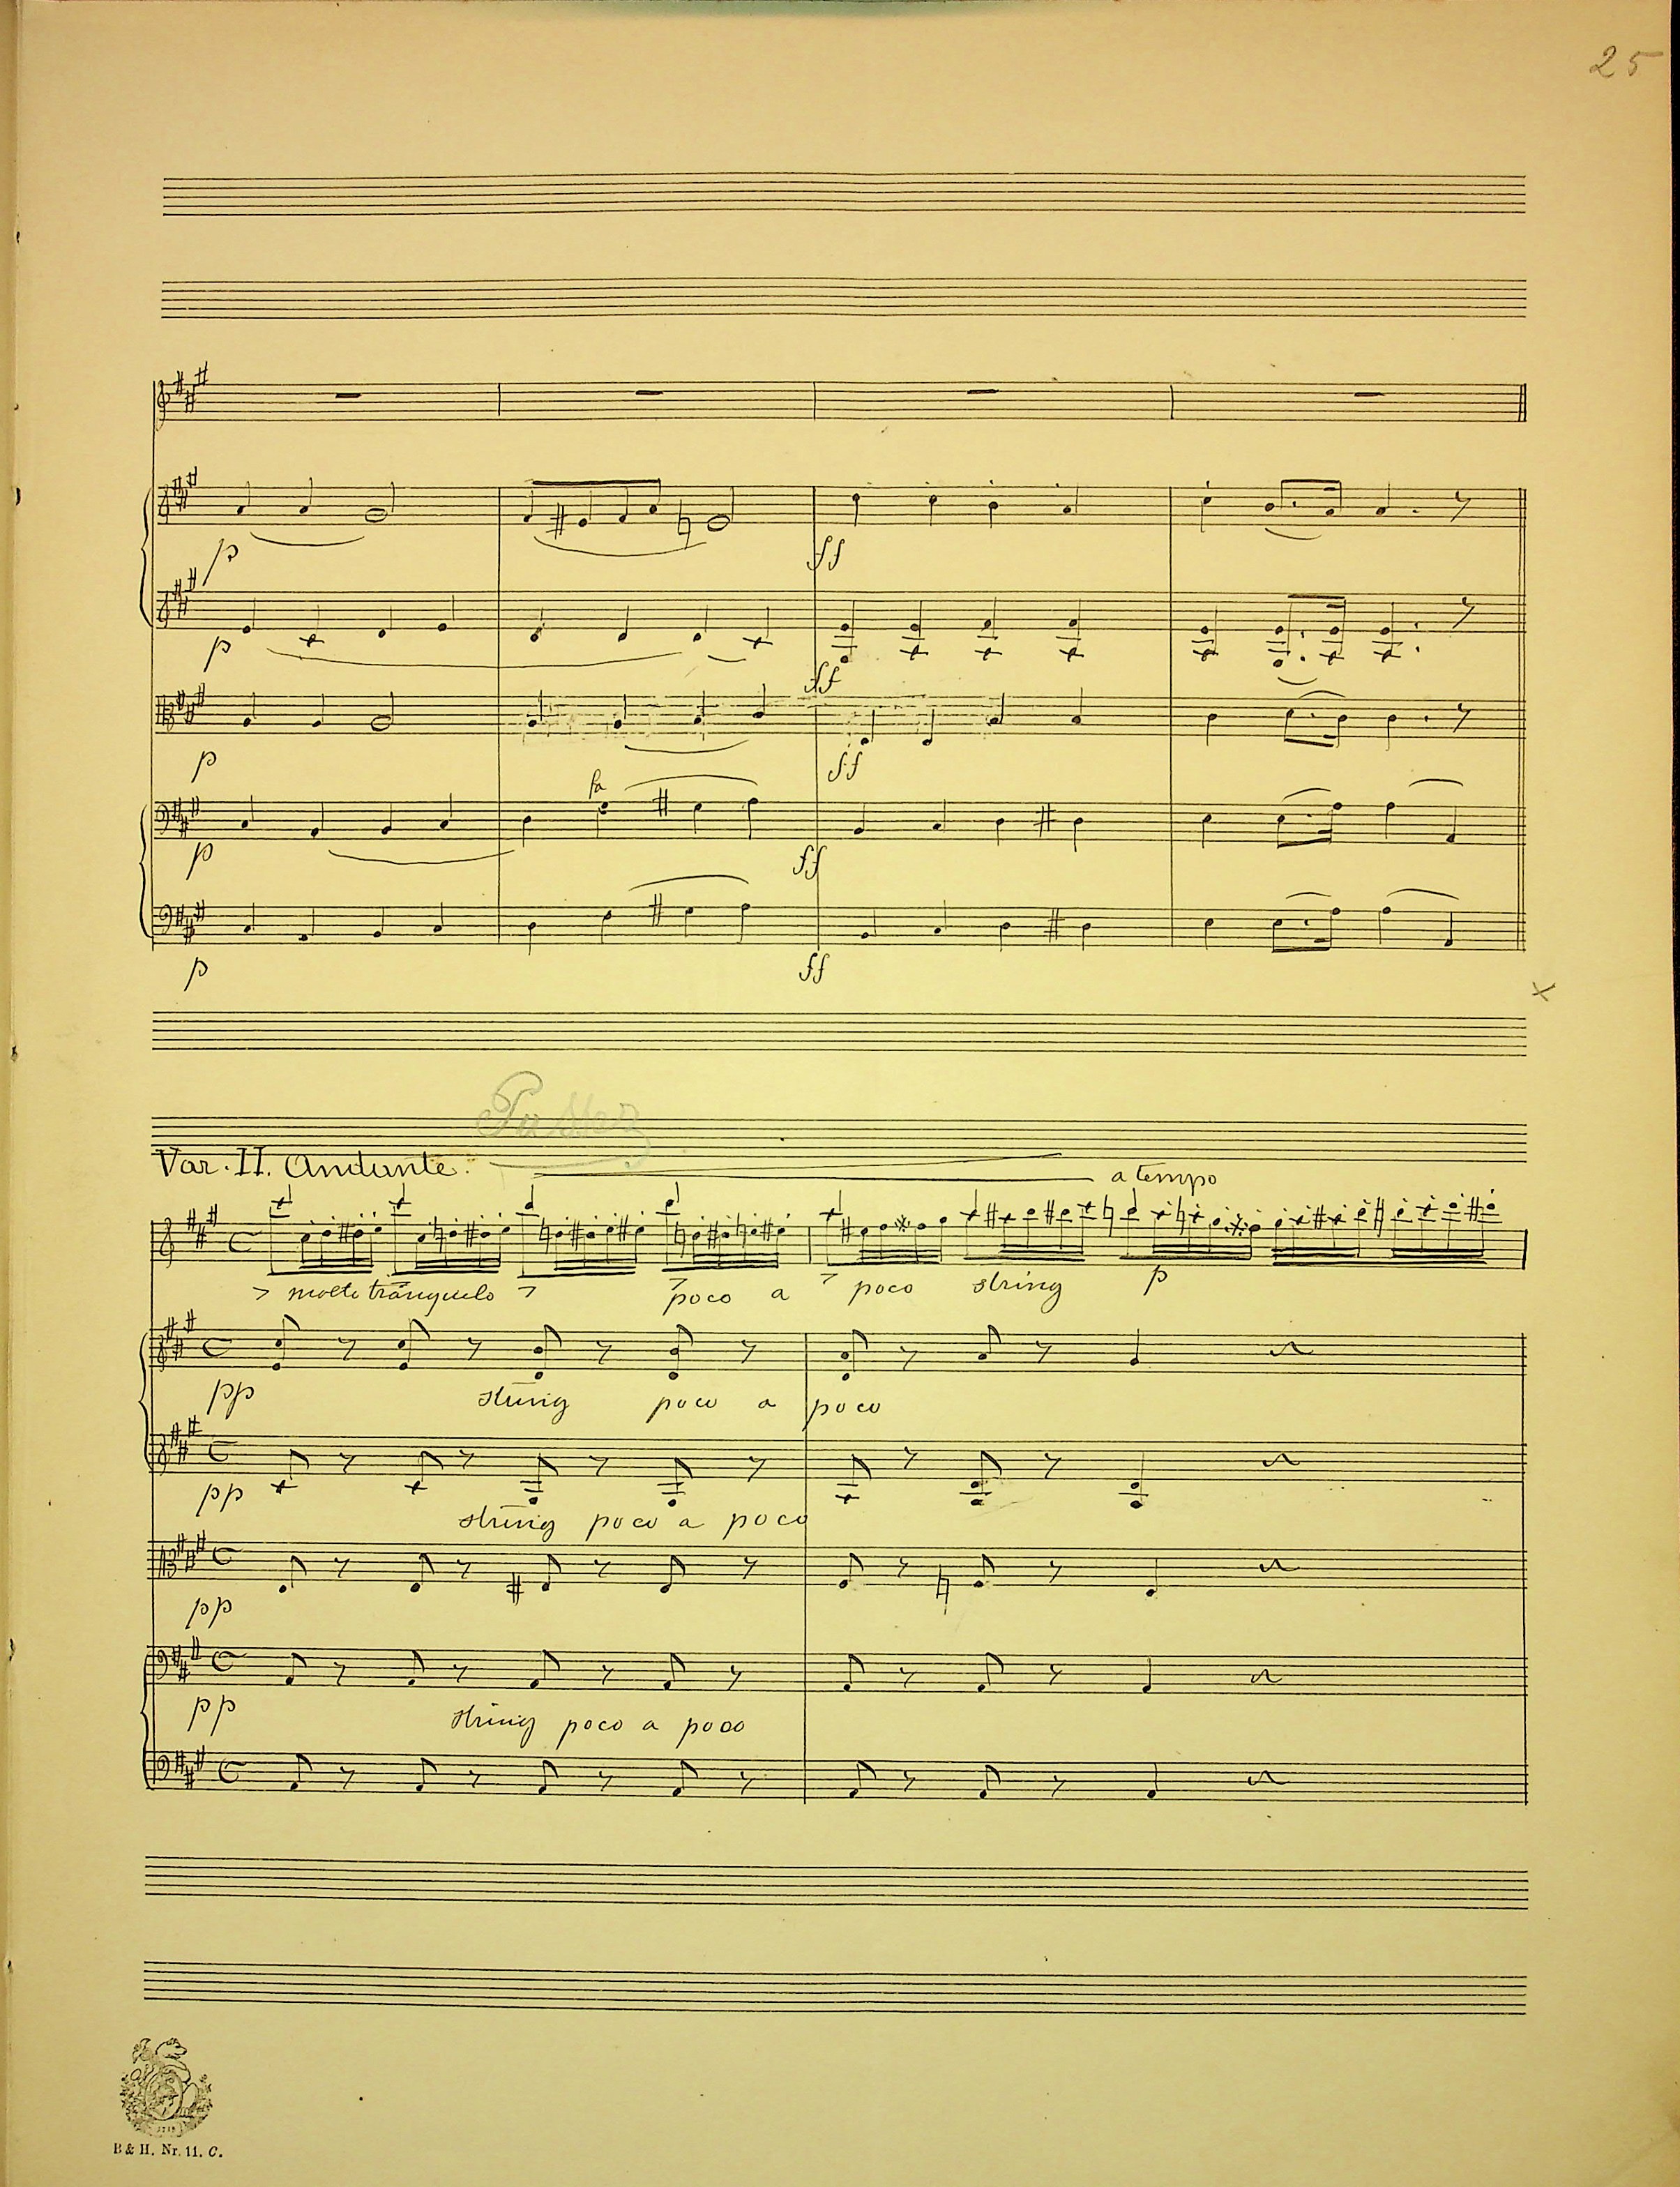 25
p
ff
p
ff
p
ff
fa
p
ff
p
ff
x
Passer
Var. II. Andante.
a tempo
> molto tranquilo > > poco a > poco string p
pp string poco a poco
pp string poco a poco
pp
pp string poco a poco
1719
B & H. Nr. 11. C.